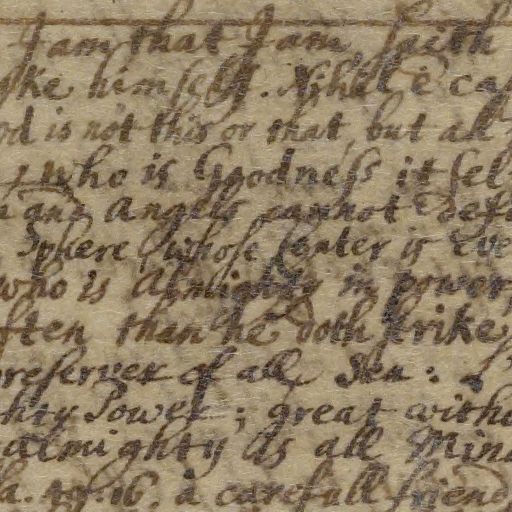 I am that I am, saith
ke himself.
od is not this or that, but all
who is Goodness it sel
and Angels cannot defi
Sphere, whose Center is eve
who is Almighty in power,
ften than he doth strike
preserver of all
hty Power; great witho
almighty is all Min
a carefull friend